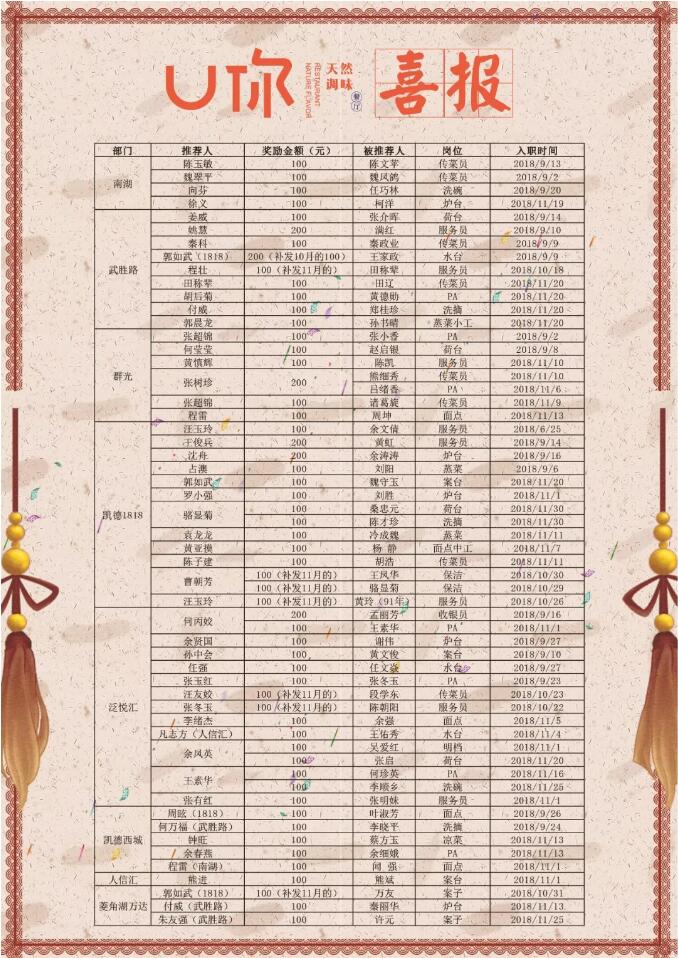 U你
天然
调味
餐厅
RESTAURANT
NATURE FLAVOR
喜报
部门 推荐人 奖励金额（元） 被推荐人 岗位 入职时间
南湖 陈玉敏 100 陈文苹 传菜员 2018/9/13
魏翠平 100 魏凤鹤 传菜员 2018/9/2
向芬 100 任巧林 洗碗 2018/9/20
徐义 100 柯洋 炉台 2018/11/19
武胜路 姜威 100 张介晖 荷台 2018/9/14
姚慧 200 满红 服务员 2018/9/10
秦科 100 秦政业 传菜员 2018/9/9
郭如武（1818） 200（补发10月的100） 王家政 水台 2018/9/9
程壮 100（补发11月的） 田称荤 服务员 2018/10/18
田称荤 100 田辽 传菜员 2018/11/20
胡后菊 100 黄德勋 PA 2018/11/20
付威 100 郑桂珍 洗摘 2018/11/20
郭晨龙 100 孙书晴 蒸菜小工 2018/11/20
群光 张超锦 100 张小香 PA 2018/9/2
何莹莹 100 赵启银 荷台 2018/9/8
黄慎辉 100 陈凯 服务员 2018/11/10
张树珍 200 熊细秀 传菜员 2018/11/10
吕绪香 PA 2018/11/6
张超锦 100 诸葛旋 传菜员 2018/11/9
程雷 100 周坤 面点 2018/11/13
凯德1818 汪玉玲 100 余文倩 服务员 2018/6/25
王俊兵 200 黄虹 服务员 2018/9/14
沈舟 200 余涛涛 炉台 2018/9/16
占澳 100 刘阳 蒸菜 2018/9/6
郭如武 100 魏守玉 案台 2018/11/20
罗小强 100 刘胜 炉台 2018/11/1
骆显菊 100 桑忠元 荷台 2018/11/30
100 陈才珍 洗摘 2018/11/30
袁龙龙 100 冷成魏 蒸菜 2018/11/11
黄亚摸 100 杨 静 面点中工 2018/11/7
陈子建 100 胡浩 传菜员 2018/11/11
曹朝芳 100（补发11月的） 王凤华 保洁 2018/10/30
100（补发11月的） 骆显菊 保洁 2018/10/29
汪玉玲 100（补发11月的） 黄玲（91年） 服务员 2018/10/26
泛悦汇 何丙姣 200 孟丽芳 收银员 2018/9/16
100 王素华 PA 2018/11/1
余贤国 100 谢伟 炉台 2018/9/27
孙中会 100 黄文俊 案台 2018/9/10
任强 100 任文焱 水台 2018/9/27
张玉红 100 张冬玉 PA 2018/9/23
汪友姣 100（补发11月的） 段学东 传菜员 2018/10/23
张冬玉 100（补发11月的） 陈朝阳 服务员 2018/10/22
李绪杰 100 余强 面点 2018/11/5
凡志方（人信汇） 100 王佑秀 水台 2018/11/4
余凤英 100 吴爱红 明档 2018/11/1
100 张启 荷台 2018/11/20
王素华 100 何珍英 PA 2018/11/16
100 李顺乡 洗碗 2018/11/25
张有红 100 张明妹 服务员 2018/11/1
凯德西城 周眩（1818） 100 叶淑芳 面点 2018/9/26
何万福（武胜路） 100 李晓平 洗摘 2018/9/24
钟旺 100 蔡方玉 凉菜 2018/11/13
余春燕 100 余细娥 PA 2018/11/13
程雷（南湖） 100 闻 强 面点 2018/11/1
人信汇 熊进 100 熊斌 案台 2018/11/1
菱角湖万达 郭如武（1818） 100（补发11月的） 万友 案子 2018/10/31
付威（武胜路） 100 秦丽华 炉台 2018/11/13
朱友强（武胜路） 100 许元 案子 2018/11/25